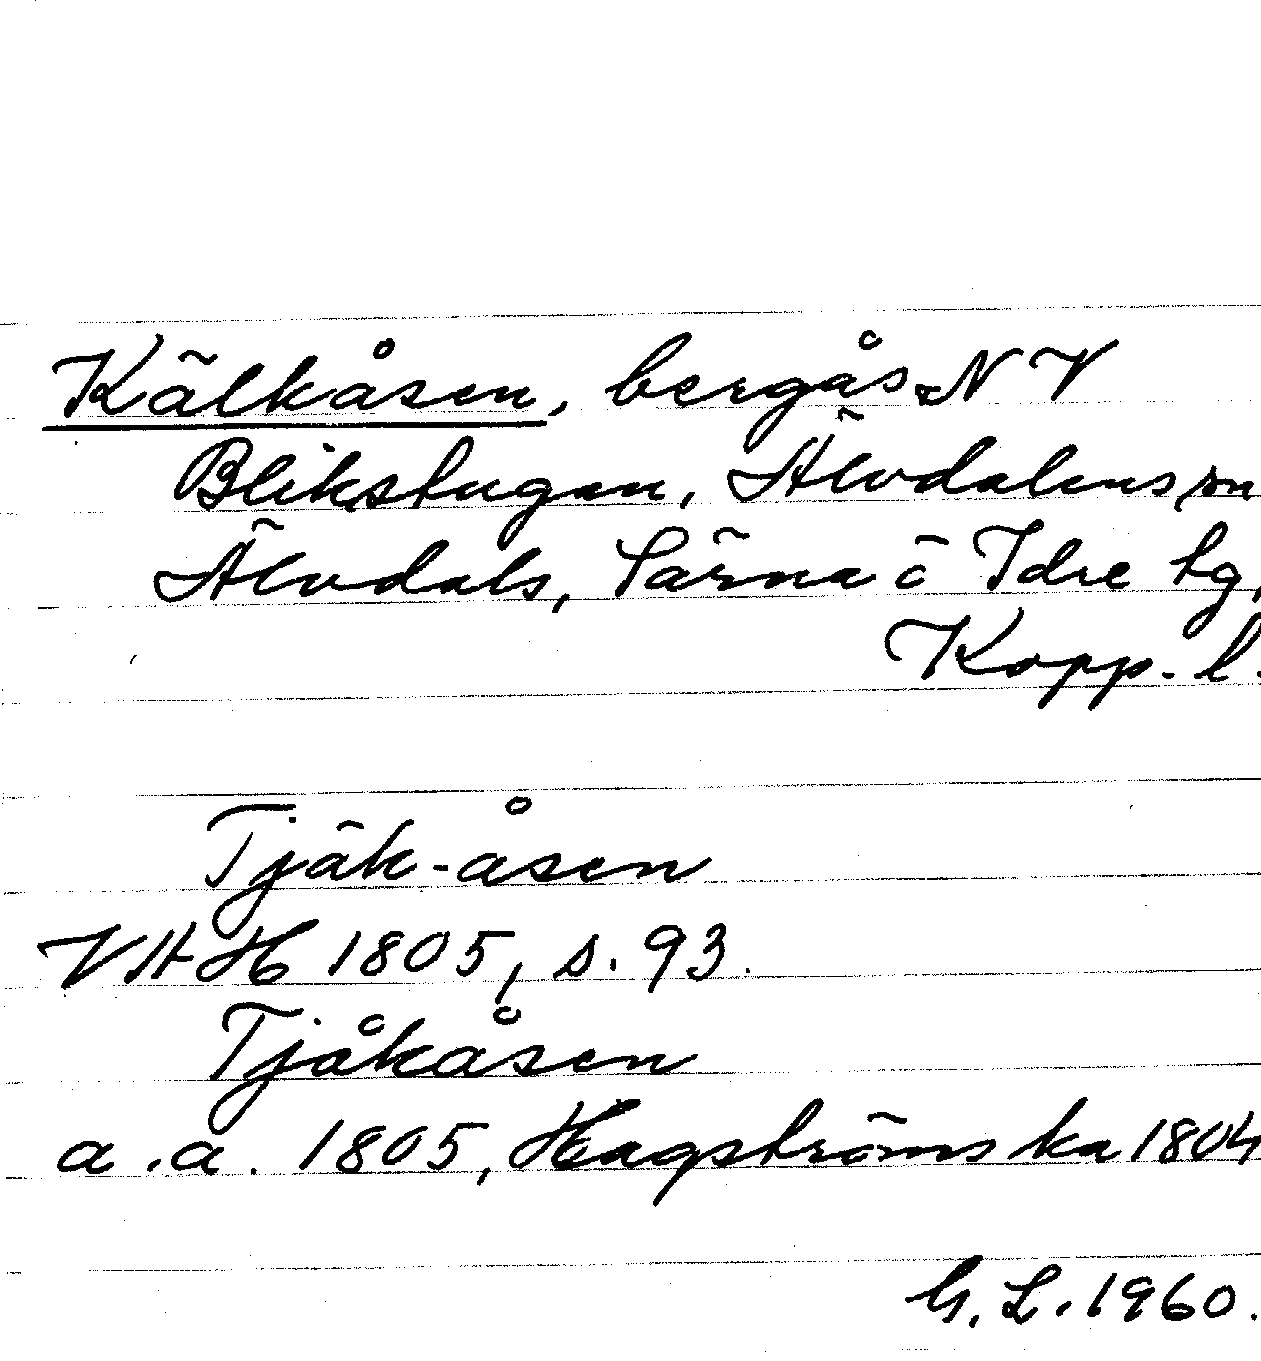 Kälkåsen, bergås NV
Blikstugan, Älvdalens sn
Älvdals, Särna o Idre tg,
Kopp. l.
Tjäk-åsen
VAH 1805, s. 93.
Tjåkåsen
a.a. 1805, Hagströms ka 1804
G. L. 1960.